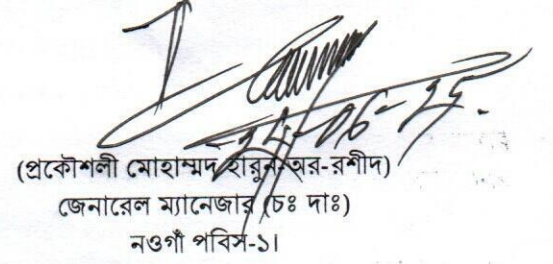 ২৫-০৬-২৫.
(প্রকৌশলী মোহাম্মদ হারুন-অর-রশীদ)
জেনারেল ম্যানেজার (চঃ দাঃ)
নওগাঁ পবিস-১।